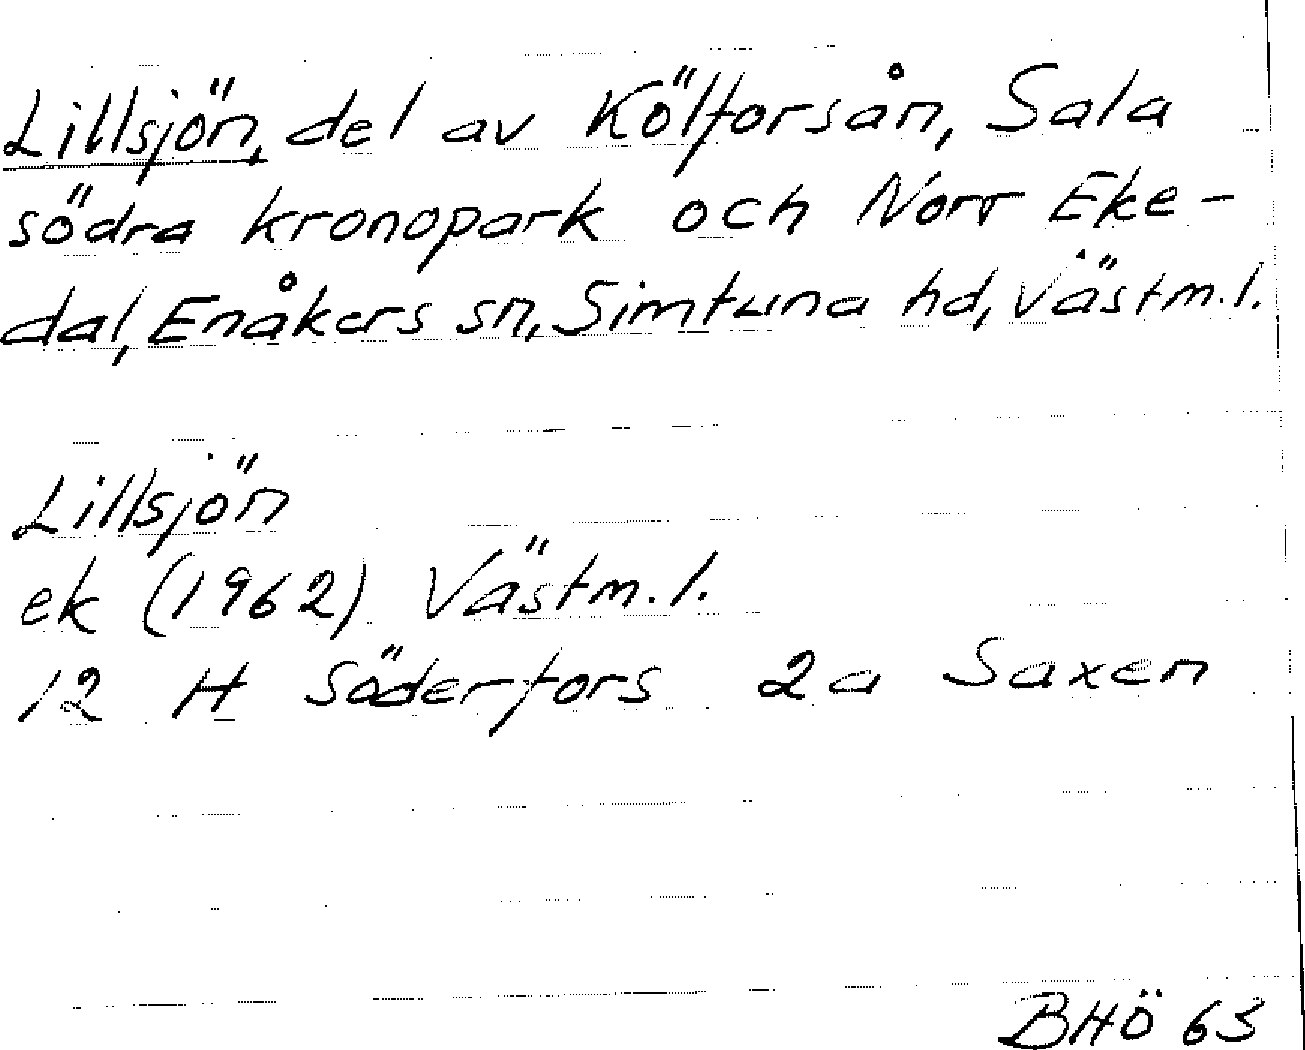 Lillsjön, del av Kölforsån, Sala
södra kronopark och Norr Eke-
dal, Enåkers sn, Simtuna hd, Västm.l.
Lillsjön
ek (1962) Västm.l.
12 H Söderfors 2a Saxen
BHÖ 63